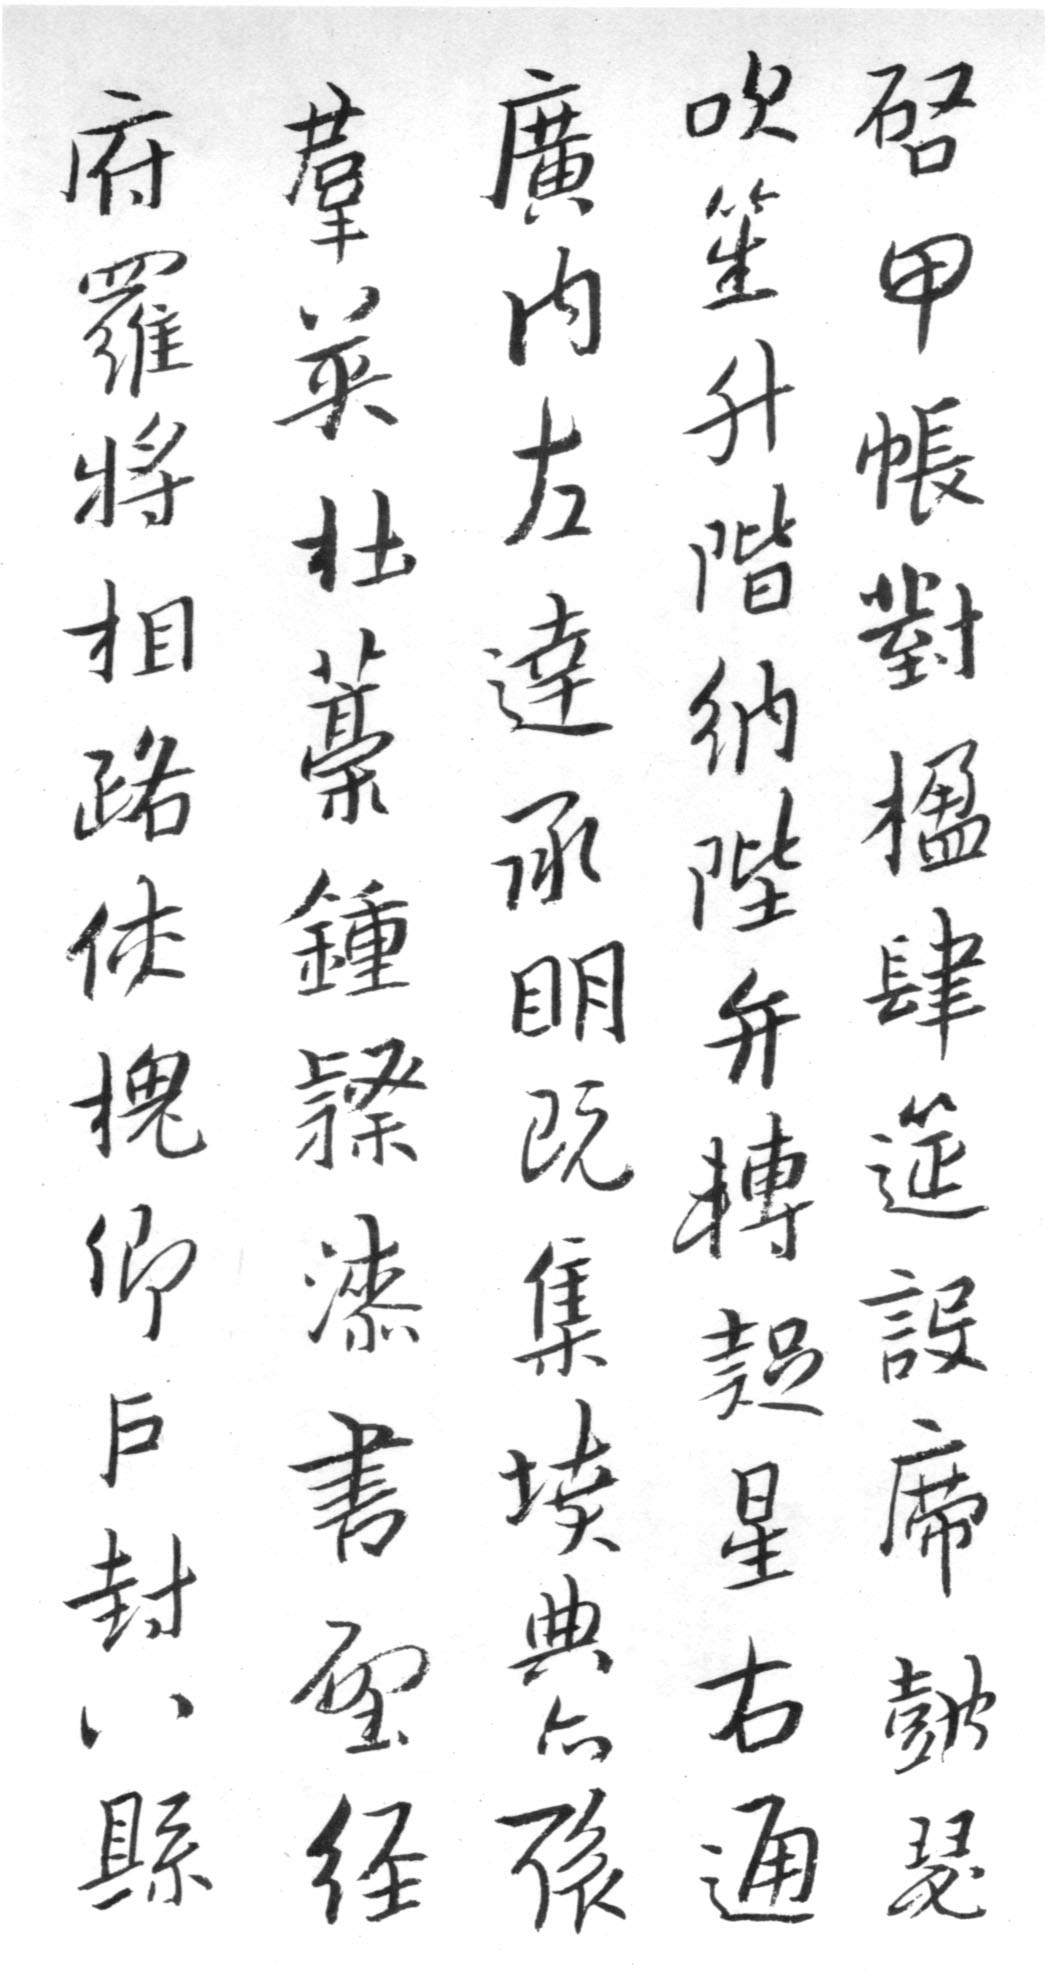 啓甲帳對楹肆筵設席鼓瑟
吹笙升階納陛弁轉疑星右通
廣內左達承明既集墳典亦聚
群英杜藁鍾隸漆書壁経
府羅將相路俠槐卿戶封八縣